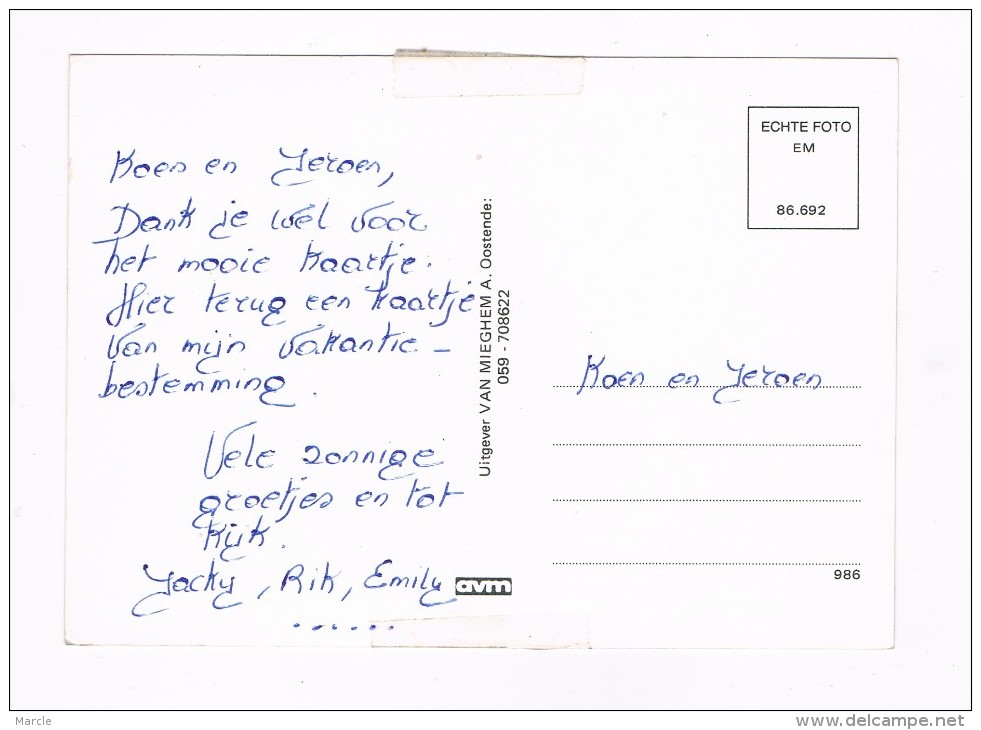 Koen en Jeroen,
Dank je wel voor
het mooie kaartje.
Hier terug een kaartje
van mijn vakantie-
bestemming.
Vele zonnige
groetjes en tot
kijk.
Jacky, Rik, Emily
......
avm
Uitgever VAN MIEGHEM A. Oostende:
059 - 708622
ECHTE FOTO
EM
86.692
Koen en Jeroen
986
Marcle
www.delcampe.net